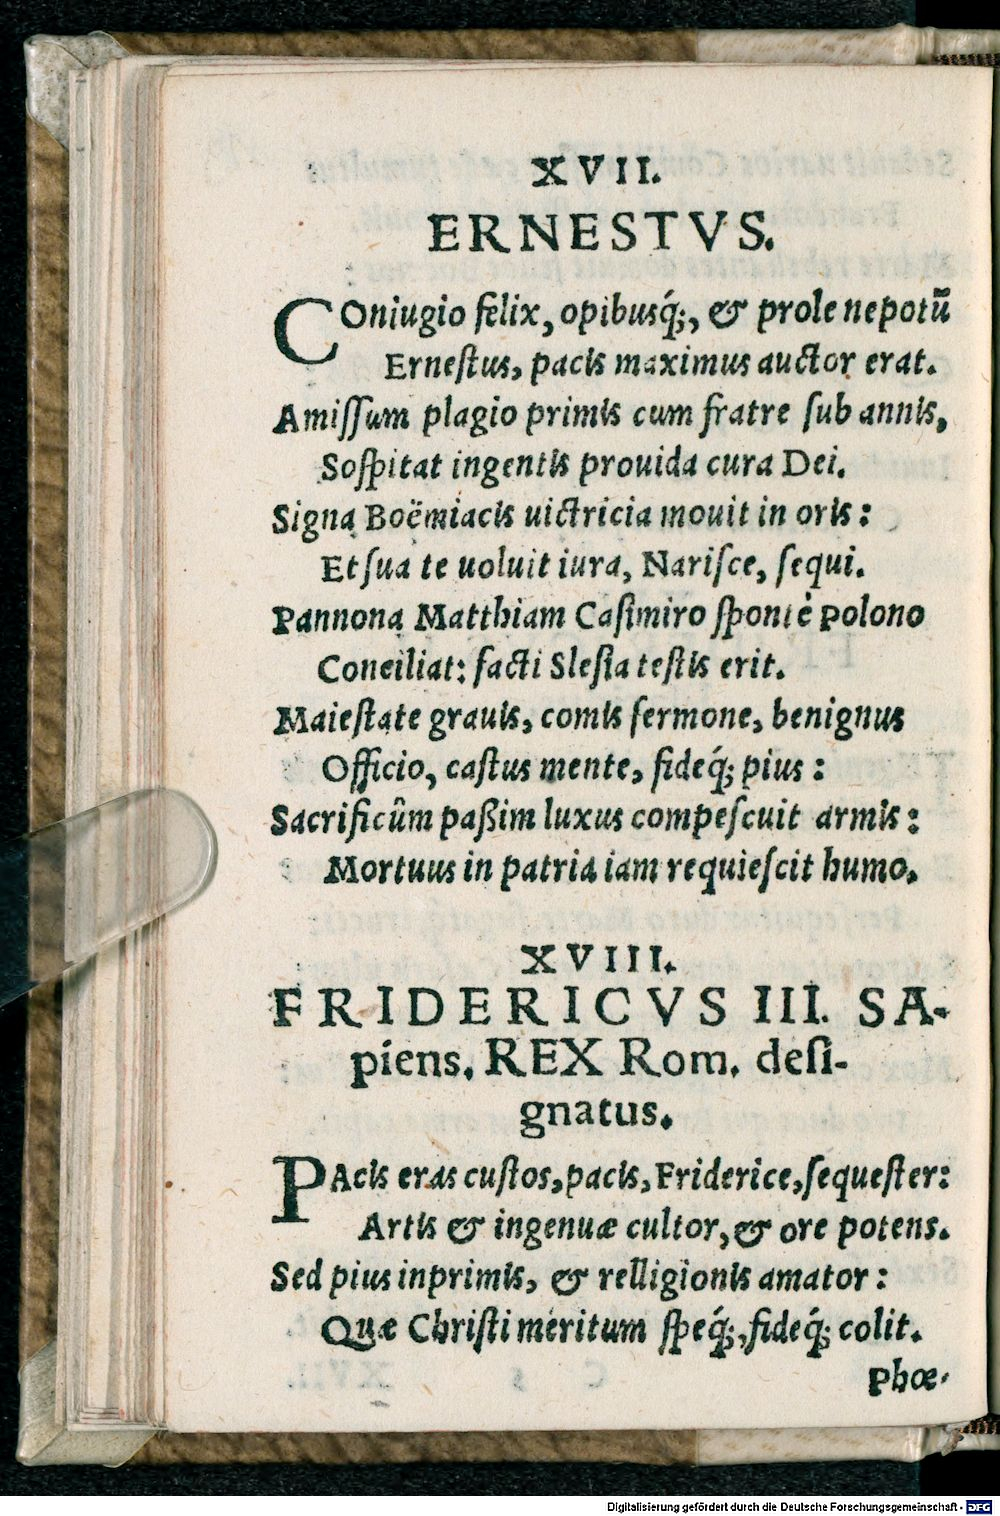 XVII.
ERNESTVS.
COniugio felix, opibusq́;, & prole nepotū
Ernestus, pacis maximus auctor erat.
Amiſſum plagio primis cum fratre ſub annis,
Soſpitat ingentis prouida cura Dei.
Signa Boëmiacis uictricia mouit in oris:
Et ſua te uoluit iura, Nariſce, ſequi.
Pannona Matthiam Caſimiro ſpontè Polono
Conciliat: facti Sleſia teſtis erit.
Maieſtate grauis, comis ſermone, benignus
Officio, caſtus mente, fideq́; pius:
Sacrificûm paßim luxus compeſcuit armis:
Mortuus in patria iam requieſcit humo.
XVIII.
FRIDERICVS III. SA-
piens. REX Rom. deſi-
gnatus.
PAcis eras cuſtos, pacis, Friderice, ſequeſter:
Artis & ingenuæ cultor, & ore potens.
Sed pius inprimis, & relligionis amator:
Quæ Chriſti meritum ſpeq́;, fideq́; colit.
Phœ-
Digitalisierung gefördert durch die Deutsche Forschungsgemeinschaft - DFG